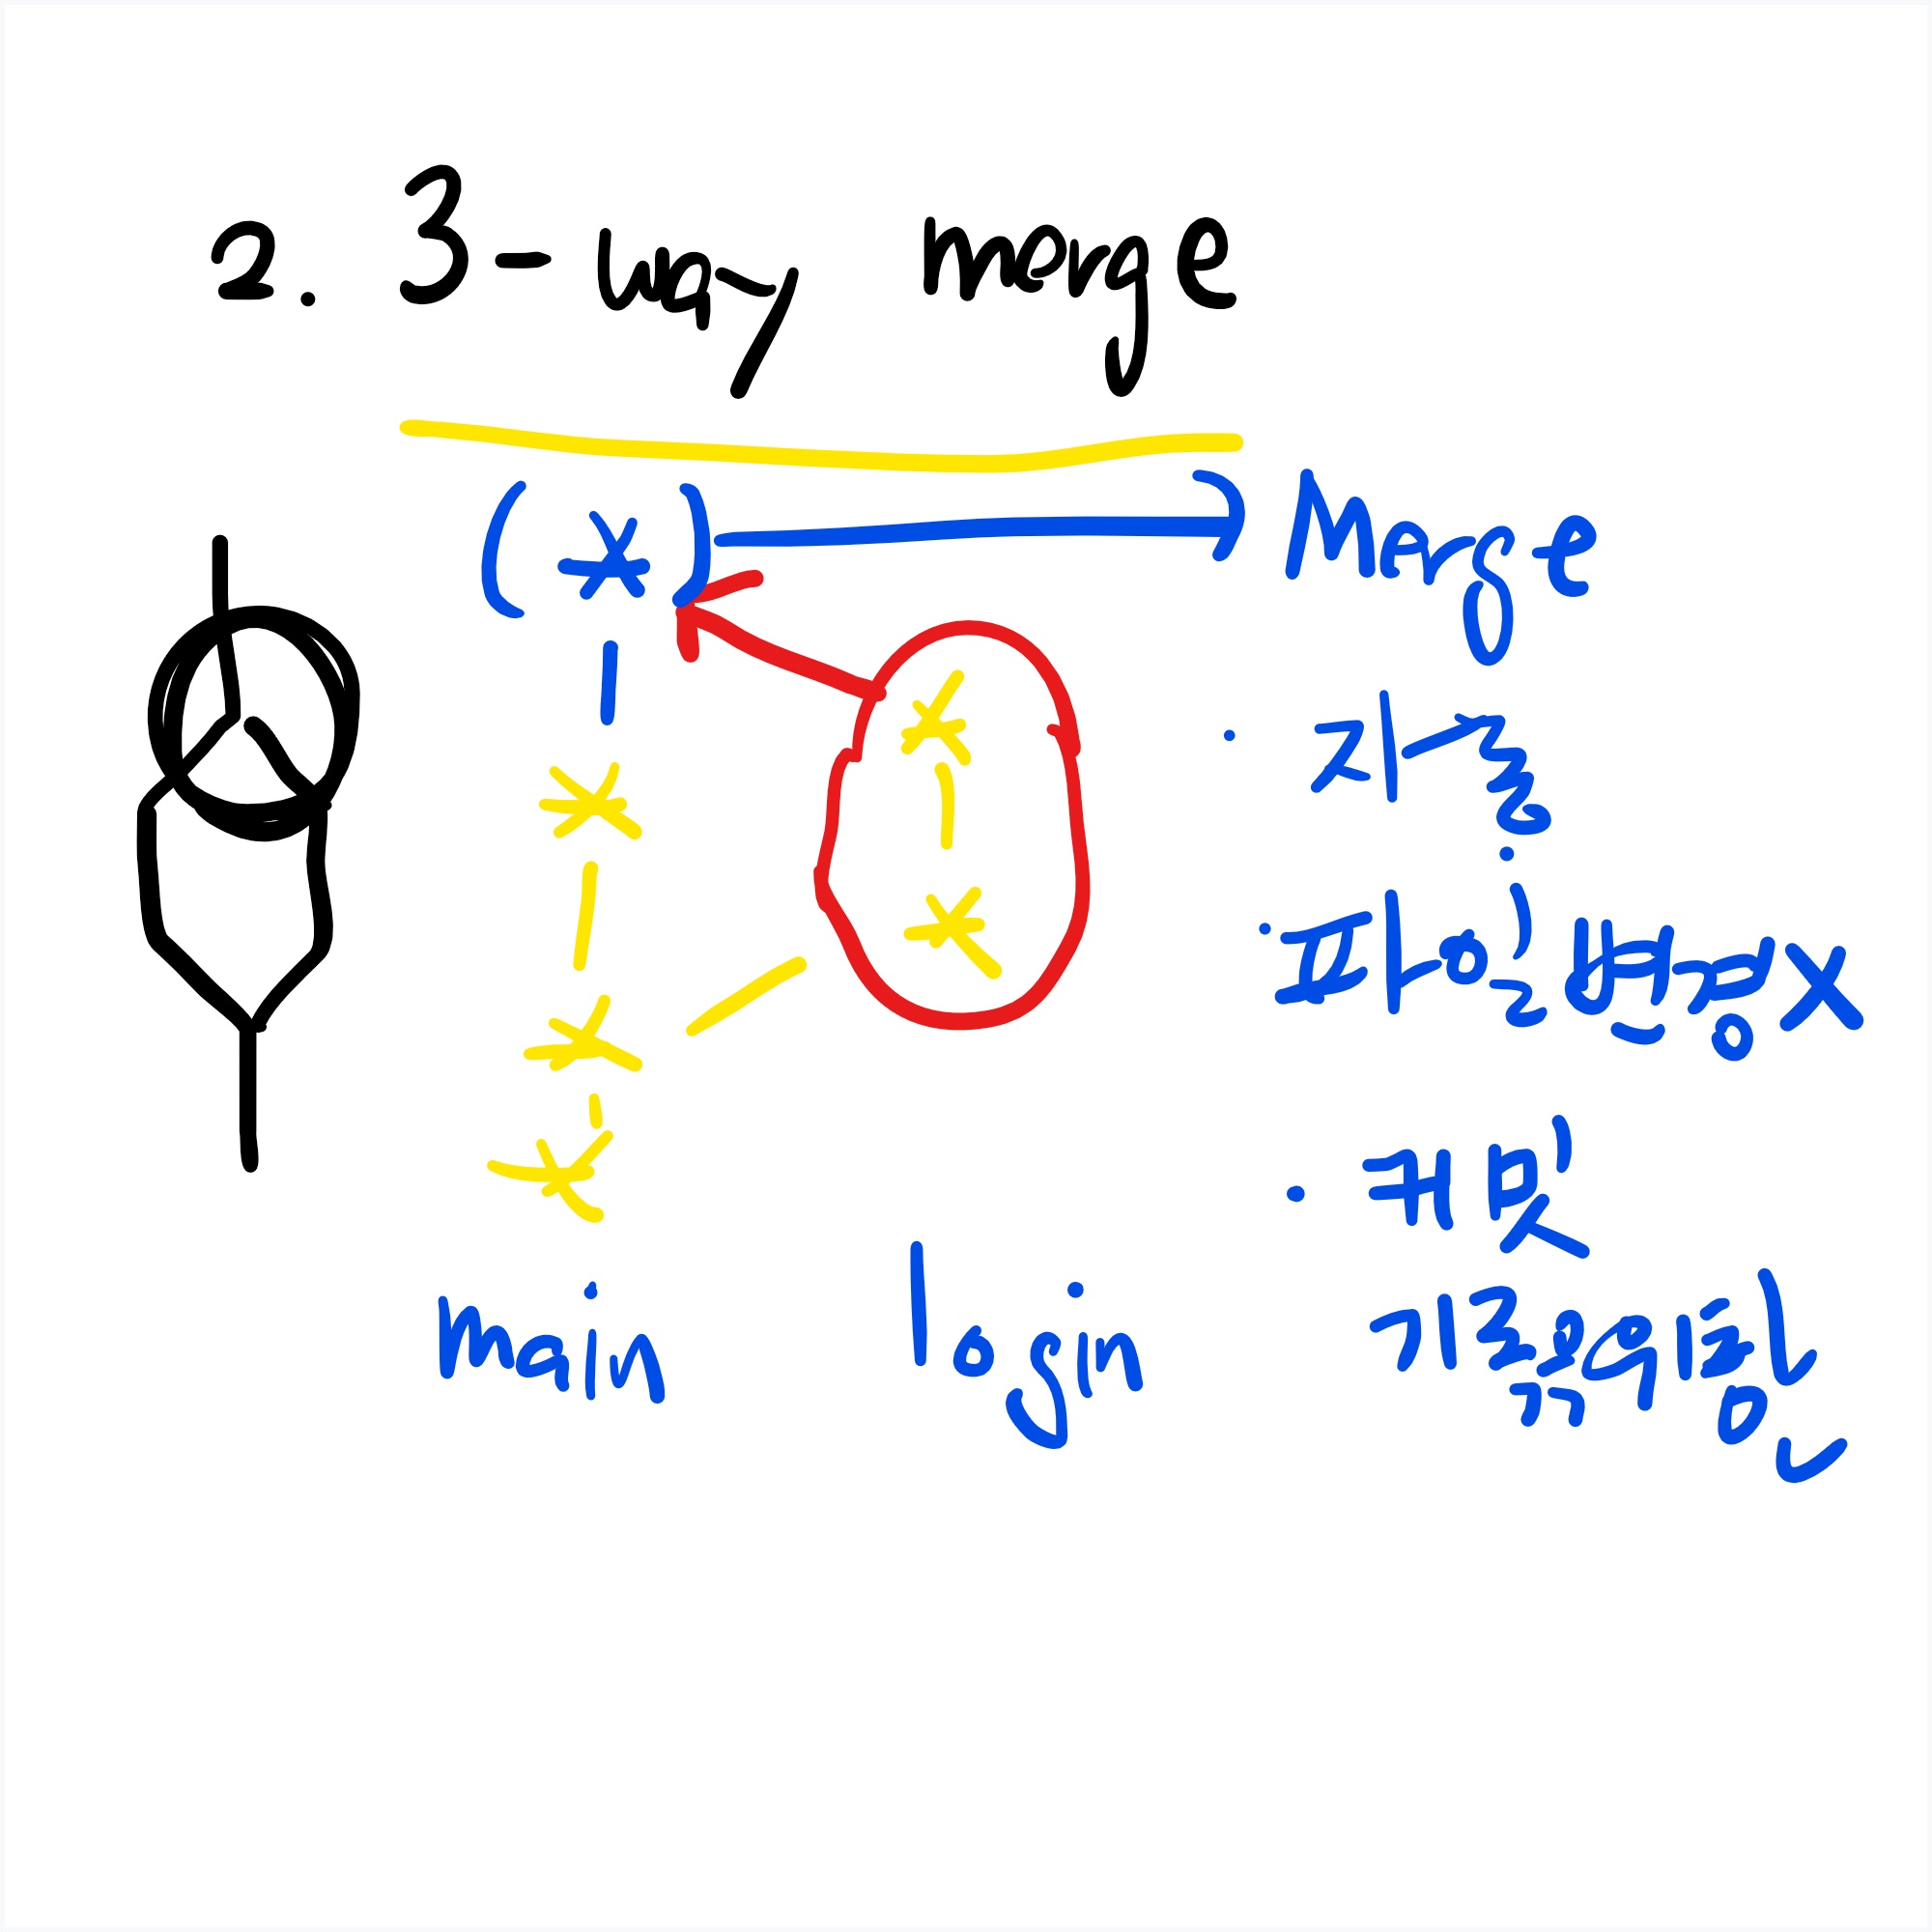 2. 3-way merge
(*) Merge
· 자동
· 파일 변경 X
· 커밋
기록을 위함
main login